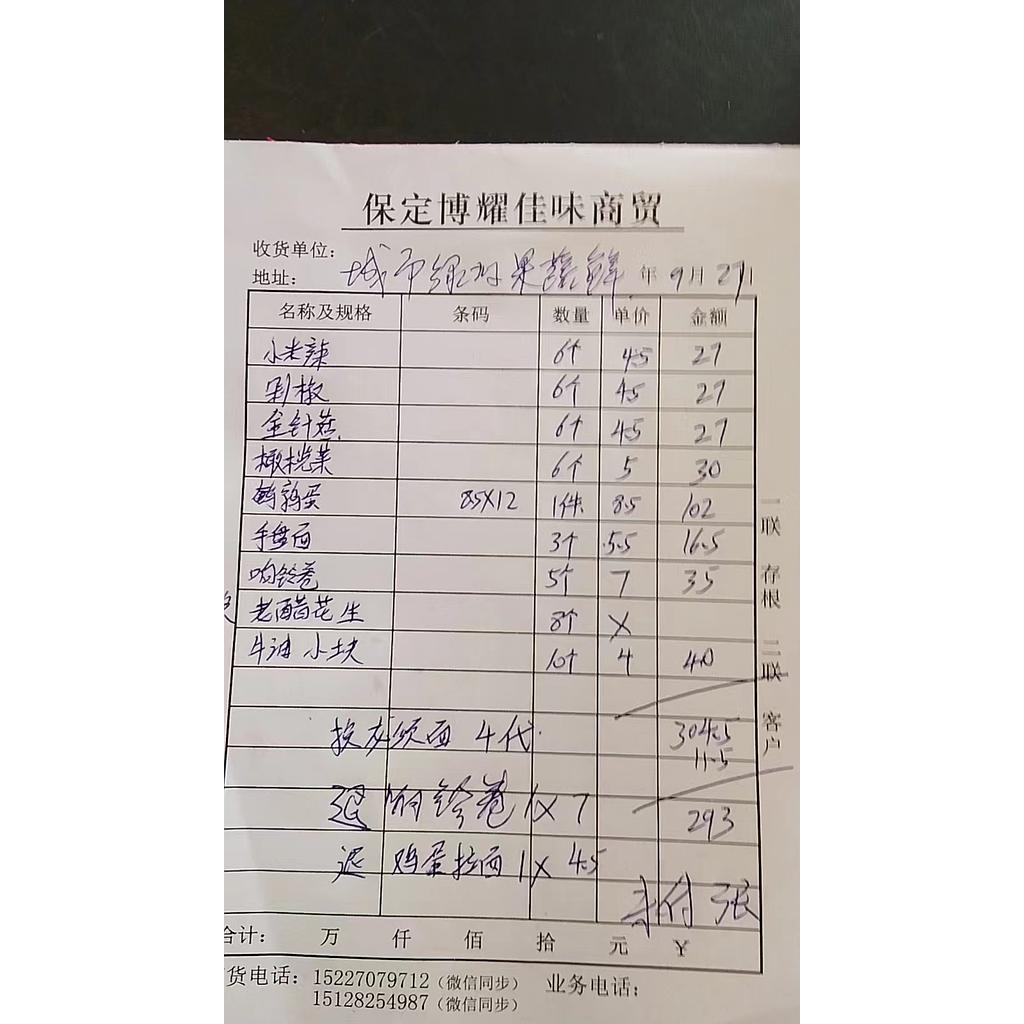 保定博耀佳味商贸
收货单位:
地址: 城市绿洲果蔬鲜 年 9月27日
名称及规格 条码 数量 单价 金额
小米辣 6个 4.5 27
剁椒 6个 4.5 27
金针菇 6个 4.5 27
橄榄菜 6个 5 30
鹌鹑蛋 8.5X12 1件 8.5 102
手盘面 3个 5.5 16.5
响铃卷 5个 7 35
老醋花生 8个 X
牛油小块 10个 4 40
换龙须面 4代 304.5
11.5
退 响铃卷 1X7 293
退 鸡蛋拉面 1X4.5
未付 张
合计: 万 仟 佰 拾 元 ¥
货电话: 15227079712 (微信同步) 业务电话:
15128254987 (微信同步)
一联 存根 二联 客户